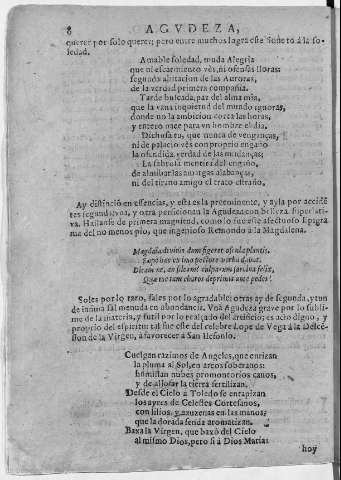 8 AGVDEZA,
querer por solo querer; pero entre muchos logra este Soneto à la so-
ledad.
Amable soledad, muda Alegria
que ni escarmiento vès, ni ofensas lloras:
segunda habitacion de las Auroras,
de la verdad primera compañia.
Tarde buscada, paz del alma mia,
que la vana inquietud del mundo ignoras,
donde no la ambicion corta las horas,
y entero nace para vn hombre el dia.
Dichosa tu, que nunca de venganças,
ni de palacio vès con proprio engaño
la ofendida verdad de las mudanças;
La sabrosa mentira del engaño,
de almibar las amargas alabanças,
ni del tirano amigo el trato estraño.
Ay distincio en essencias, y esta es la preeminente, y ay la por acciden
tes segundarios, y otra perficiona la Agudeza con belleza superlati-
va. Hallanse de primera magnitud, como lo fue este afectuoso Epigra
ma del no menos pio, que ingenioso Remondo à la Magdalena.
Magdala divinis dum figeret oscula plantis,
Dicam ne, an sileam? culparum sarcina felix,
Quae me tam charos deprimis ante pedes?
Soles por lo raro, sales por lo agradable: otras ay de segunda, y tan
de infima sal menuda en abundancia. Vna Agudeza grave por lo subli-
me de la materia, y sutil por lo realçado del artificio; es acto digno, y
proprio del espiritu: tal fue este del celebre Lope de Vega à la Descen-
sion de la Virgen, à favorecer à San Ilefonso.
Cuelgan razimos de Angeles, que enrizan
la pluma al Sol, en arcos soberanos:
humillan nubes promontorios canos,
y de aljofar la tierra fertilizan.
Desde el Cielo à Toledo se entapizan
los ayres de Celestes Cortesanos,
con lilios, y azuzenas en las manos;
que la dorada senda aromatizan.
Baxa la Virgen, que baxò del Cielo
al mismo Dios, pero si à Dios Maria:
hoy